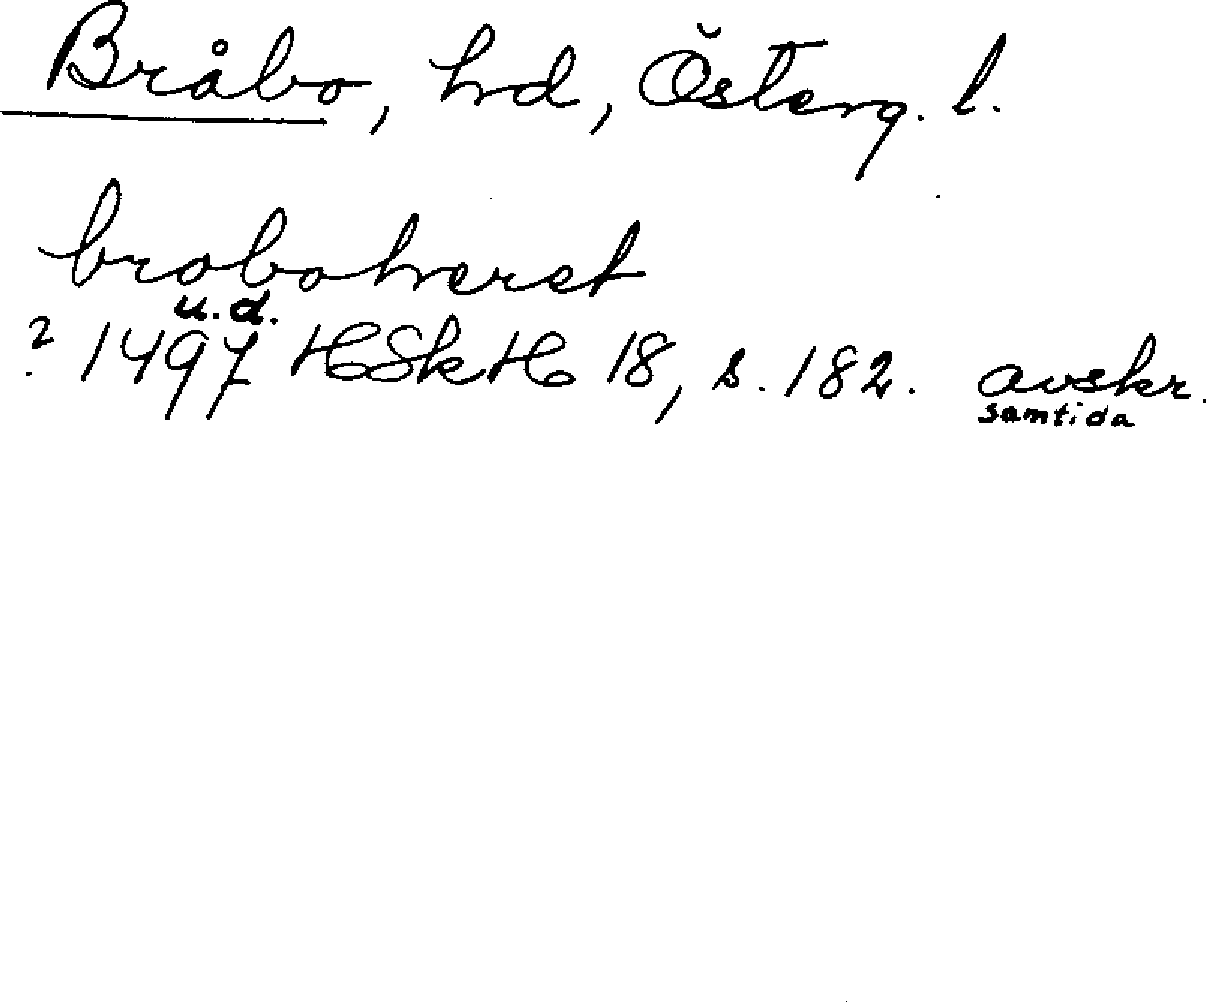 Bråbo, hd, Österg. l.
broboheret
u.d.
? 1497 HSkH 18, s. 182. avskr.
samtida